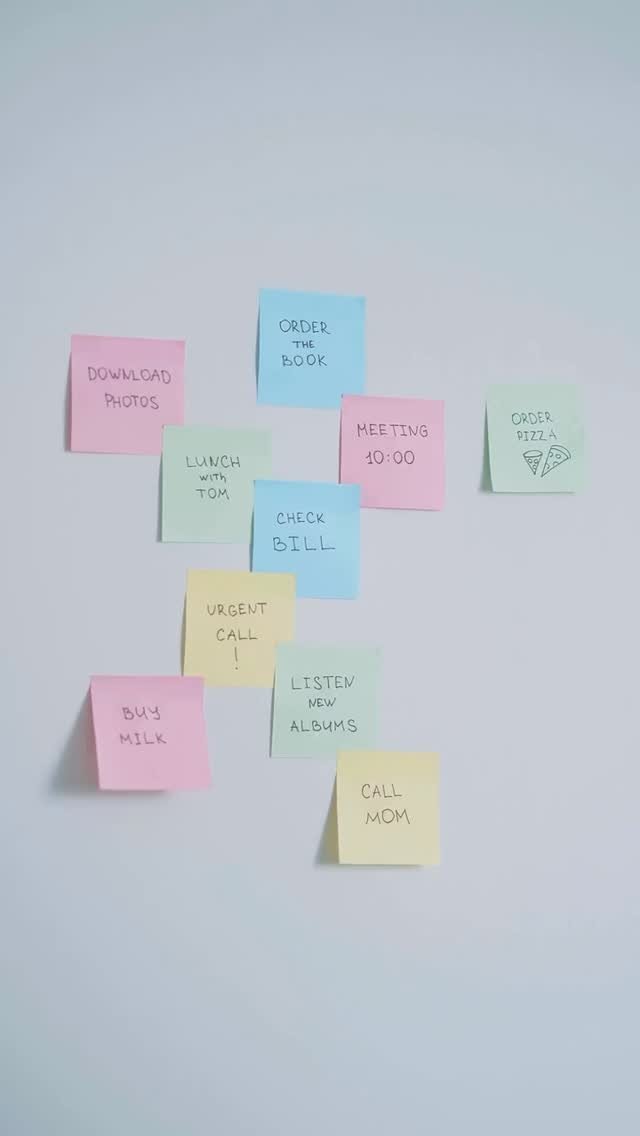 ORDER
THE
BOOK
DOWNLOAD
PHOTOS
MEETING
10:00
ORDER
PIZZA
LUNCH
with
TOM
CHECK
BILL
URGENT
CALL
!
LISTEN
NEW
ALBUMS
BUY
MILK
CALL
MOM